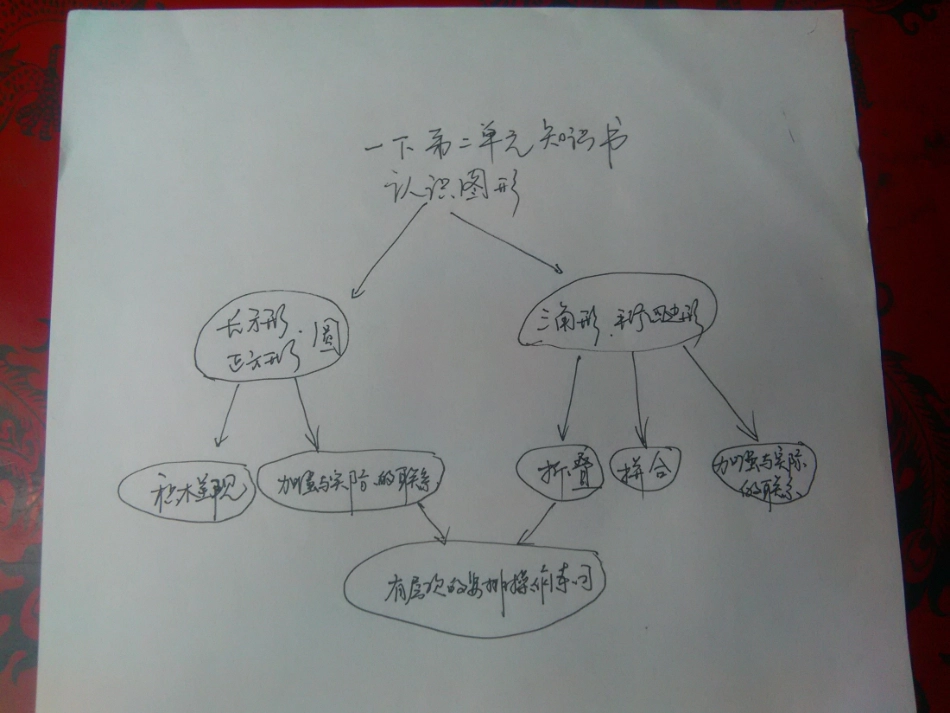 一下第二单元知识书
认识图形
长方形·圆
正方形
三角形·平行四边形
积木呈现
加强与实际的联系
折叠
拼合
加强与实际
的联系
有层次的安排操作练习